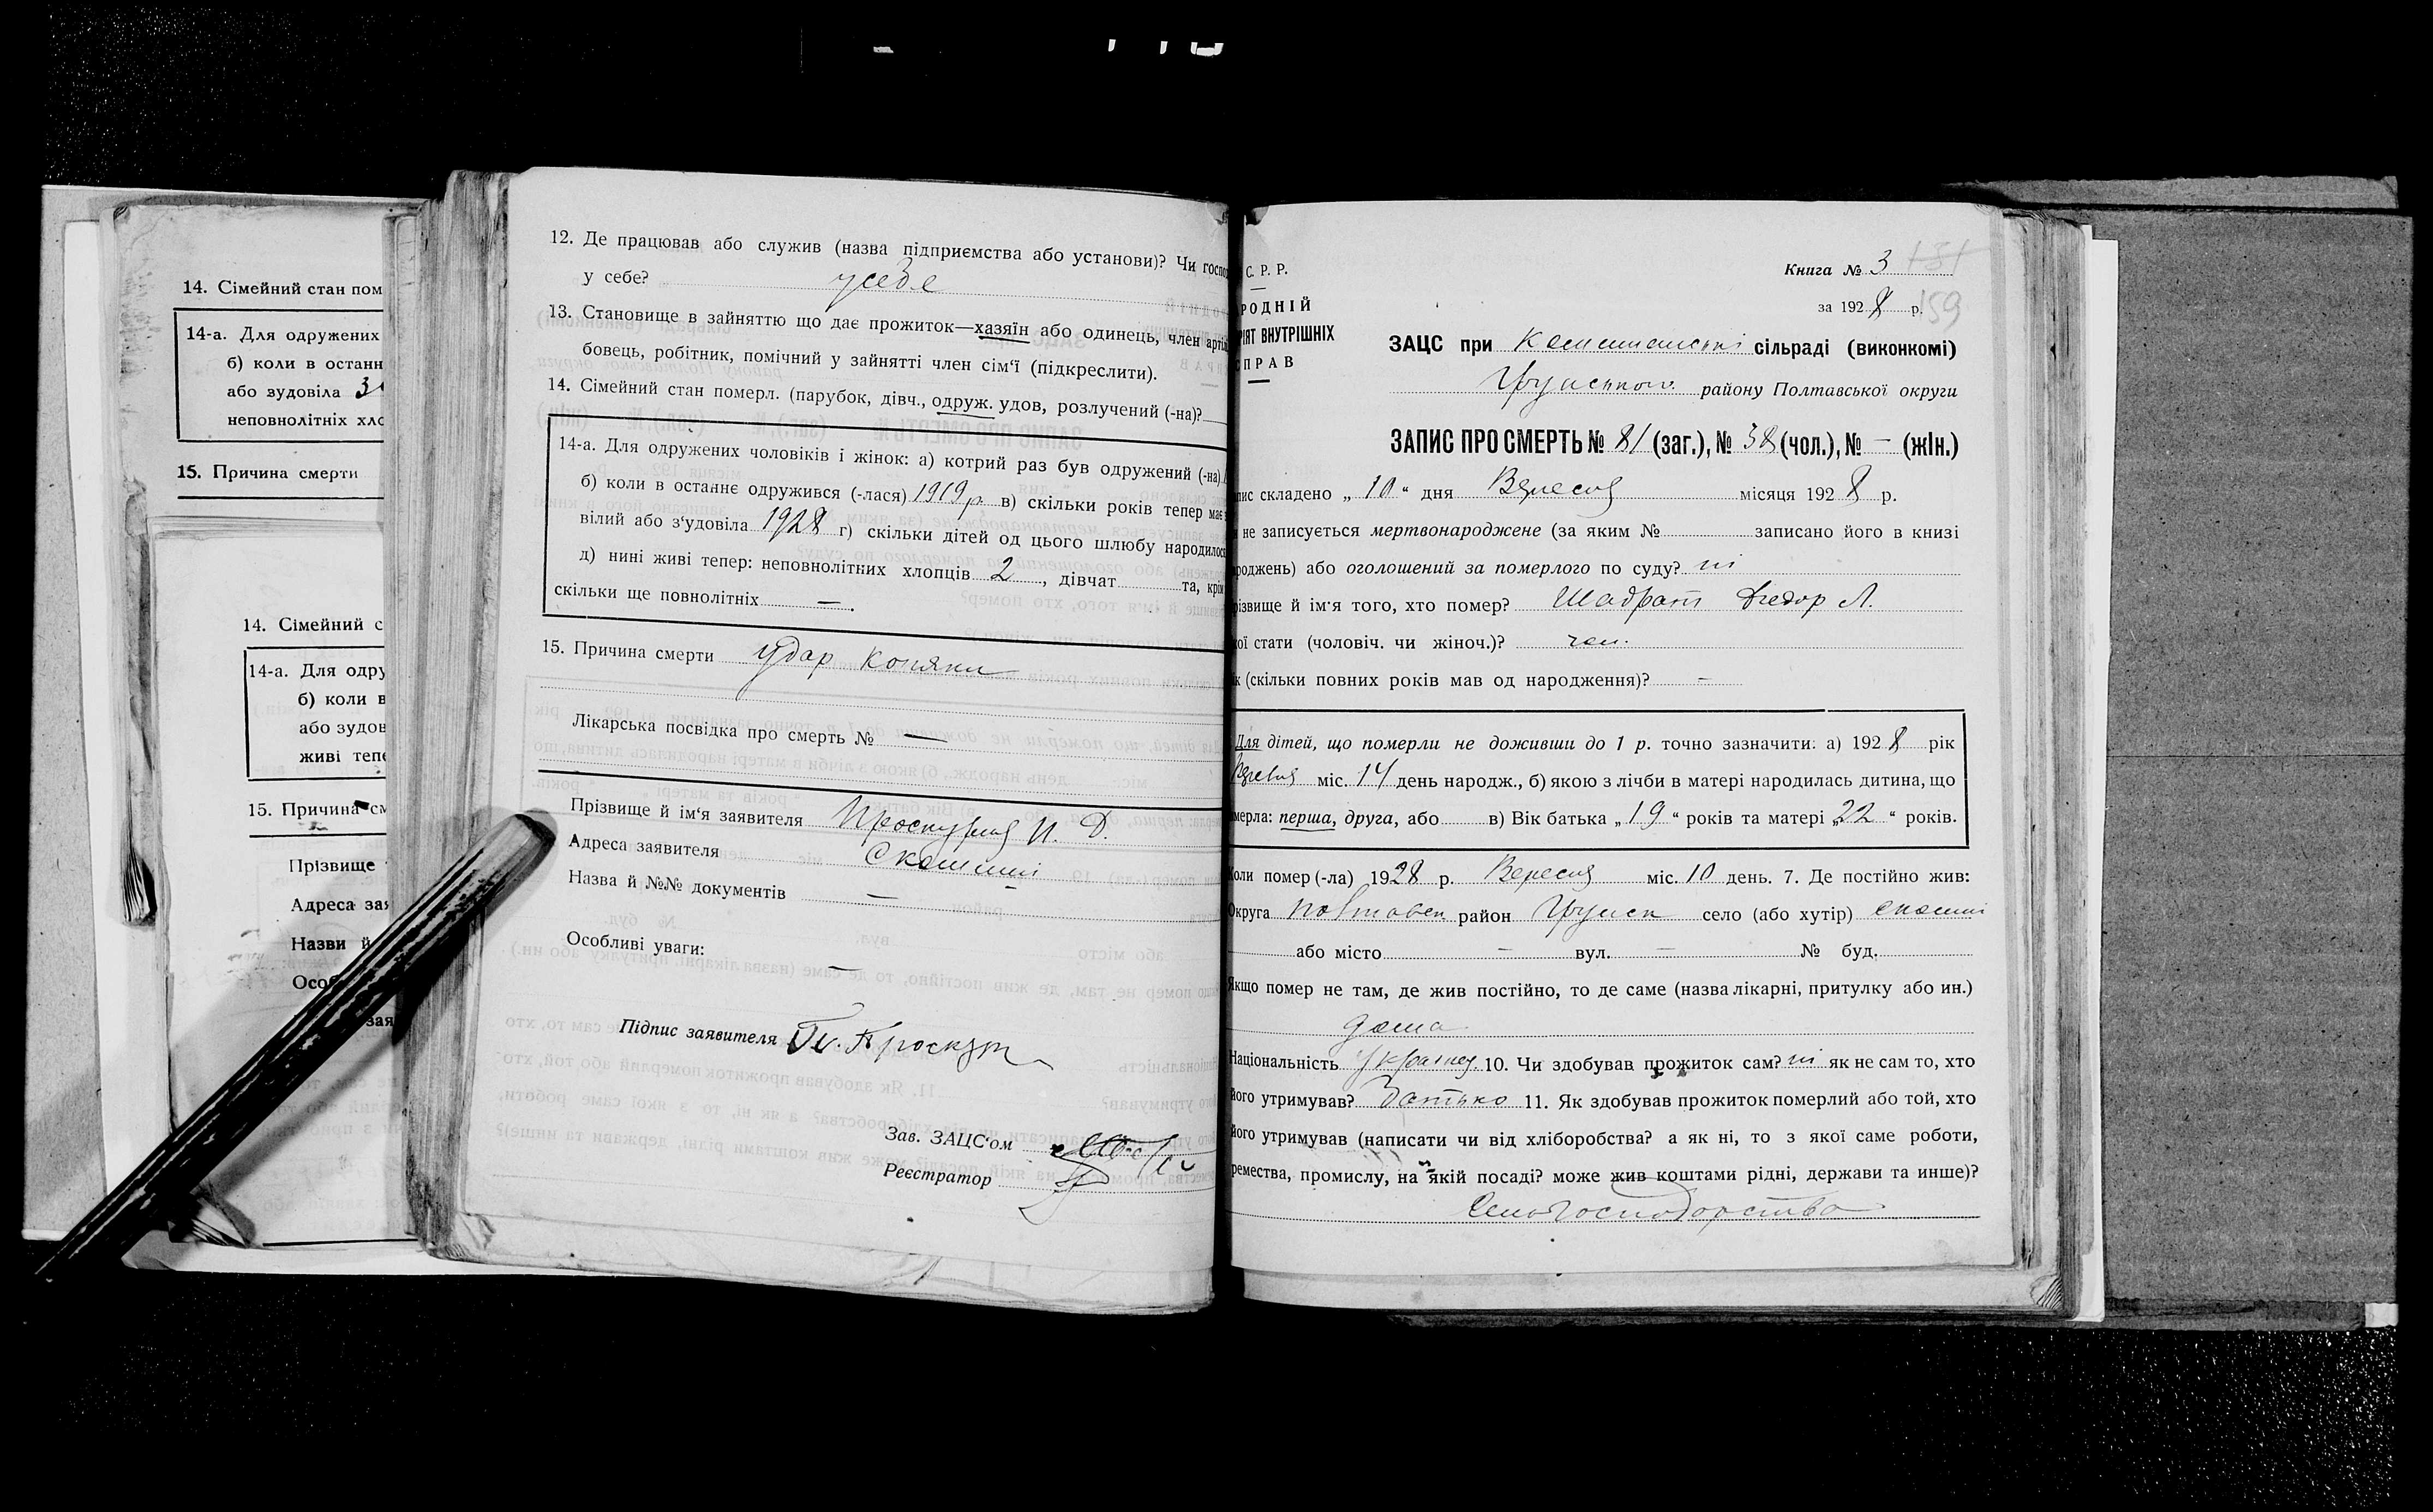 14. Сімейний стан пом
14-а. Для одружених
б) коли в останн
або зудовіла 3
неповнолітніх хло
15. Причина смерти
14. Сімейний с
14-а. Для одру
б) коли в
або зудов
живі тепе
15. Причина см
Прізвище
Адреса зая
Назви й
Особ
зая
12. Де працював або служив (назва підприємства або установи)? Чи госпо
у себе? у себе
13. Становище в зайняттю що дає прожиток—хазяїн або одинець, член арті
бовець, робітник, помічний у зайнятті член сім‘ї (підкреслити).
14. Сімейний стан померл. (парубок, дівч., одруж. удов, розлучений (-на)?
14-а. Для одружених чоловіків і жінок: а) котрий раз був одружений (-на)
б) коли в останнє одружився (-лася) 1919 р. в) скільки років тепер має
вілий або з‘удовіла 1928 г) скільки дітей од цього шлюбу народилося
д) нині живі тепер: неповнолітких хлопців 2, дівчат та, крім
скільки ще повнолітніх — .
15. Причина смерти Удар коняки
Лікарська посвідка про смерть № —
Прізвище й ім‘я заявителя Проскурня И. Д.
Адреса заявителя Скошині
Назва й №№ документів —
Особливі уваги:
—
Підпис заявителя Проскур
Зав. ЗАЦС‘ом
Реєстратор
С. Р. Р.
РОДНІЙ
РІЯТ ВНУТРІШНІХ
СПРАВ
Книга № 3 131
за 1928 р. 159
ЗАЦС при сільраді (виконкомі)
Грунського району Полтавської округи
ЗАПИС ПРО СМЕРТЬ № 81 (заг.), № 38 (чол.), № — (жін.)
пис складено „ 10 “ дня Вересня місяця 1928 р.
и не записується мертвонароджене (за яким № записано його в книзі
роджень) або оголошений за померлого по суду? ні
різвище й ім‘я того, хто помер? Шадрат Федор Л.
кої стати (чоловіч. чи жіноч.)? чол.
к (скільки повних років мав од народження)? —
Для дітей, що померли не доживши до 1 р. точно зазначити: а) 1928 рік
міс. 14 день народж., б) якою з лічби в матері народилась дитина, що
мерла: перша, друга, або в) Вік батька „ 19 “ років та матері „ 22 “ років.
Коли помер (-ла) 1928 р. Вересня міс. 10 день. 7. Де постійно жив:
Округа Полтавск район Грунск село (або хутір) Скошині
або місто — вул. — № буд.
Якщо помер не там, де жив постійно, то де саме (назва лікарні, притулку або ин.)
дома
Національність Українец 10. Чи здобував прожиток сам? ні як не сам то, хто
його утримував? Батько 11. Як здобував прожиток померлий або той, хто
його утримував (написати чи від хліборобства? а як ні, то з якої саме роботи,
ремества, промислу, на якій посаді? може жив коштами рідні, держави та инше)?
Сельгосподарства